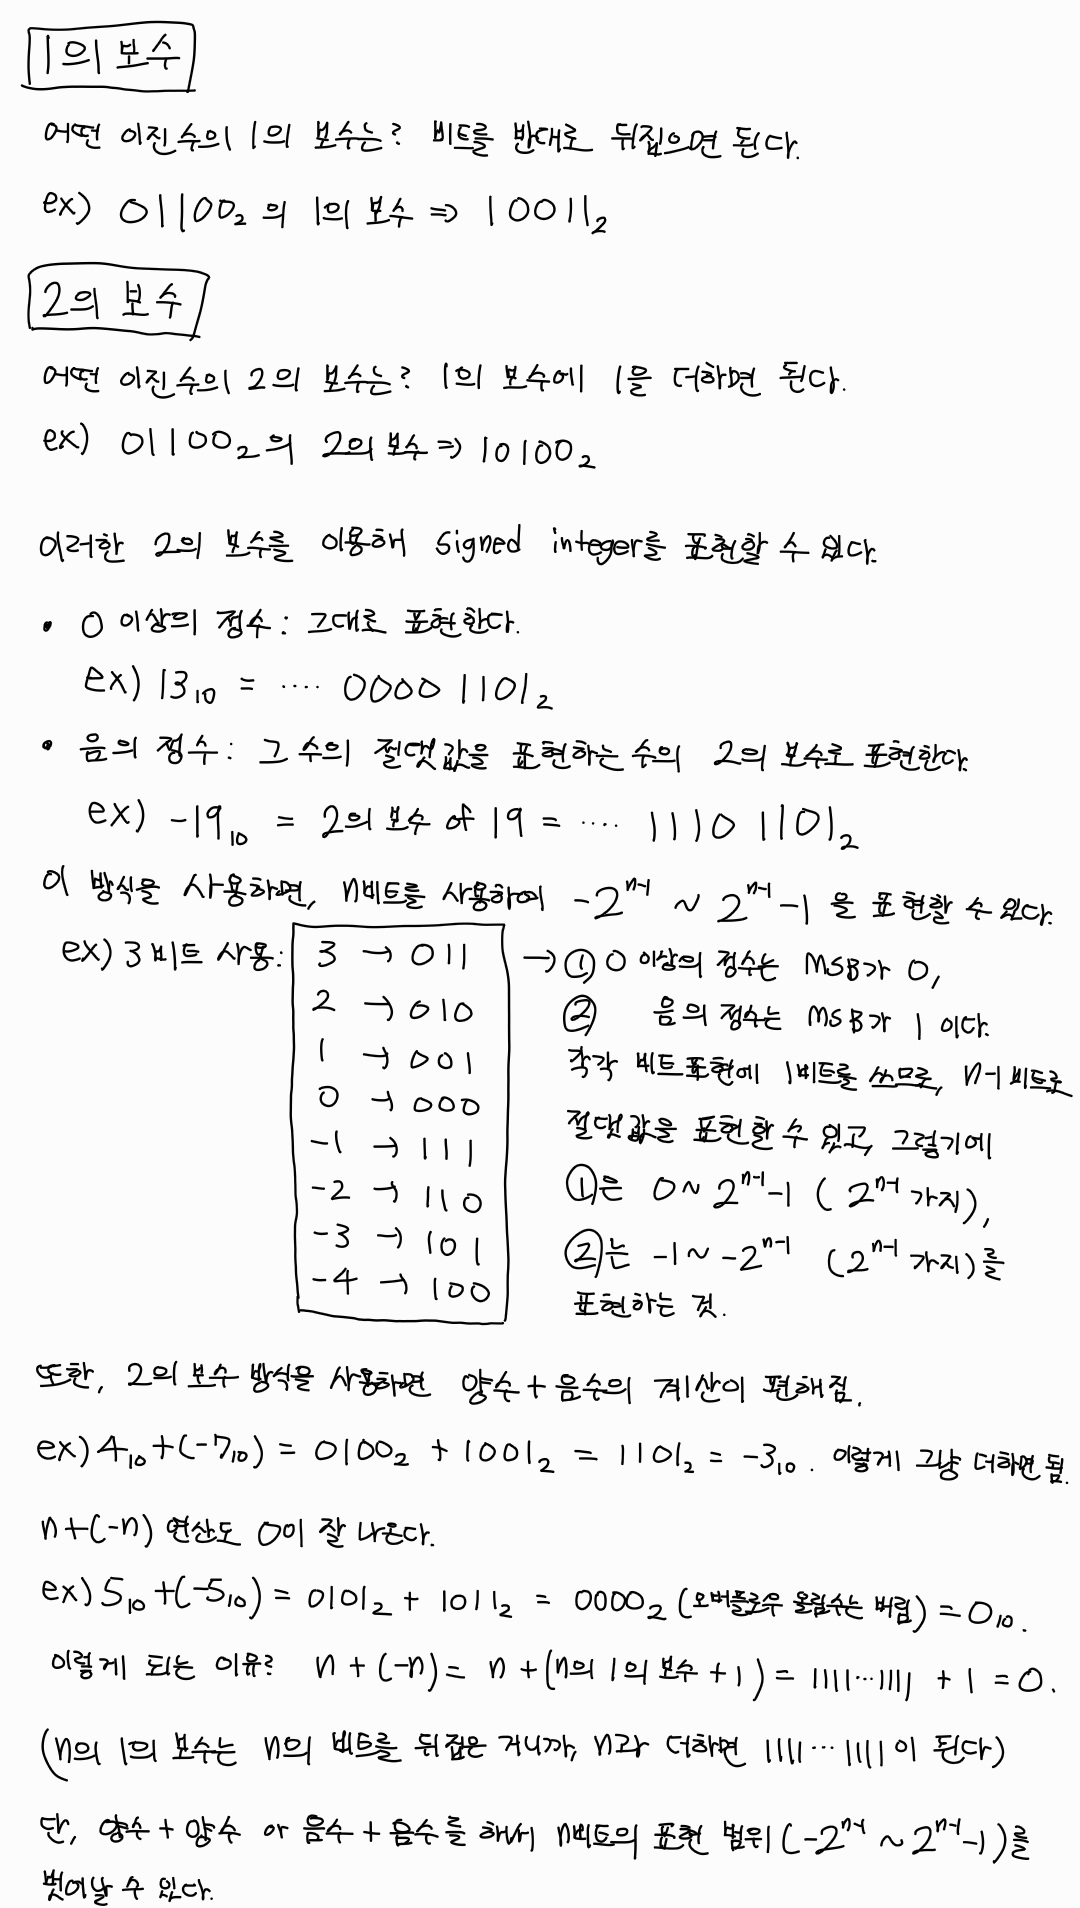 1의 보수
어떤 이진수의 1의 보수는? 비트를 반대로 뒤집으면 된다.
ex) 01100₂의 1의 보수 ⇒ 10011₂
2의 보수
어떤 이진수의 2의 보수는? 1의 보수에 1을 더하면 된다.
ex) 01100₂의 2의 보수 ⇒ 10100₂
이러한 2의 보수를 이용해 signed integer를 표현할 수 있다.
• 0 이상의 정수: 그대로 표현한다.
ex) 13₁₀ = ···· 0000 1101₂
• 음의 정수: 그 수의 절댓값을 표현하는 수의 2의 보수로 표현한다.
ex) -19₁₀ = 2의 보수 of 19 = ···· 1110 1101₂
이 방식을 사용하면, n비트를 사용하여 -2ⁿ⁻¹ ~ 2ⁿ⁻¹-1 을 표현할 수 있다.
ex) 3비트 사용:
3 → 011
2 → 010
1 → 001
0 → 000
-1 → 111
-2 → 110
-3 → 101
-4 → 100
→ ① 0 이상의 정수는 MSB가 0,
② 음의 정수는 MSB가 1 이다.
각각 비트표현에 1비트를 쓰므로, n-1비트로
절댓값을 표현할 수 있고, 그렇기에
①은 0 ~ 2ⁿ⁻¹-1 (2ⁿ⁻¹ 가지),
②는 -1 ~ -2ⁿ⁻¹ (2ⁿ⁻¹ 가지)를
표현하는 것.
또한, 2의 보수 방식을 사용하면 양수 + 음수의 계산이 편해짐.
ex) 4₁₀+(-7₁₀) = 0100₂ + 1001₂ = 1101₂ = -3₁₀. 이렇게 그냥 더하면 됨.
n+(-n) 연산도 0이 잘 나온다.
ex) 5₁₀+(-5₁₀) = 0101₂ + 1011₂ = 0000₂ (오버플로우 올림수는 버림) = 0₁₀.
이렇게 되는 이유? n + (-n) = n + (n의 1의 보수 + 1) = 1111···1111 + 1 = 0.
(n의 1의 보수는 n의 비트를 뒤집은 거니까, n과 더하면 1111···1111이 된다)
단, 양수 + 양수 or 음수 + 음수를 해서 n비트의 표현 범위 (-2ⁿ⁻¹ ~ 2ⁿ⁻¹-1)를
벗어날 수 있다.